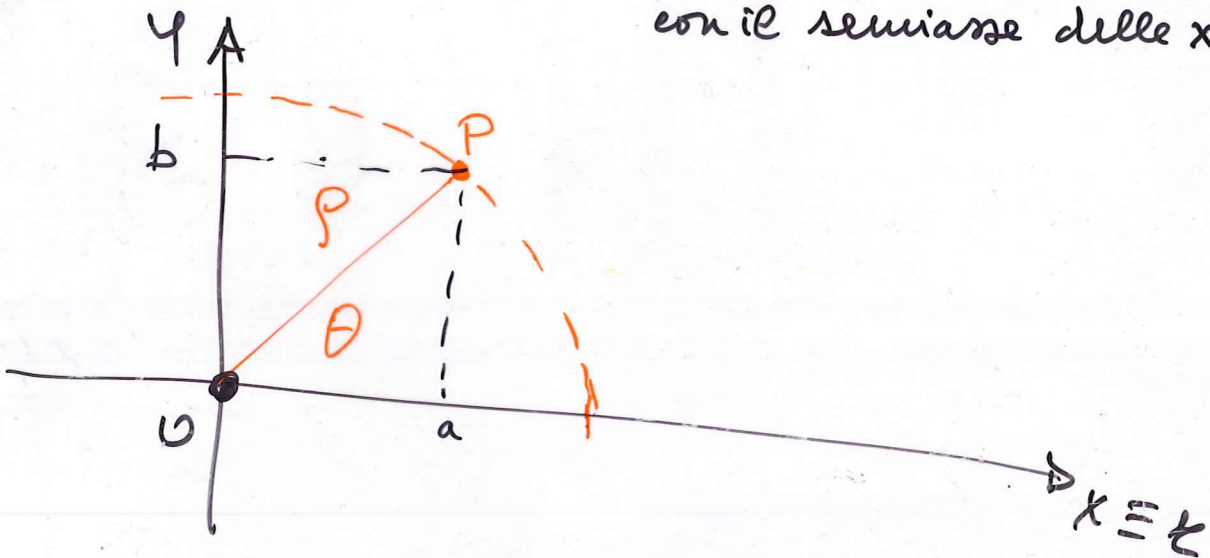 con il semiasse delle x
y
b
P
ρ
θ
O
a
x ≡ r